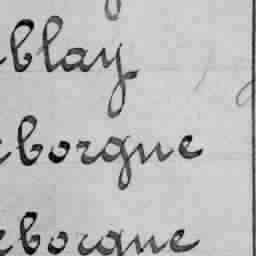 blay
eborgne
eborgne